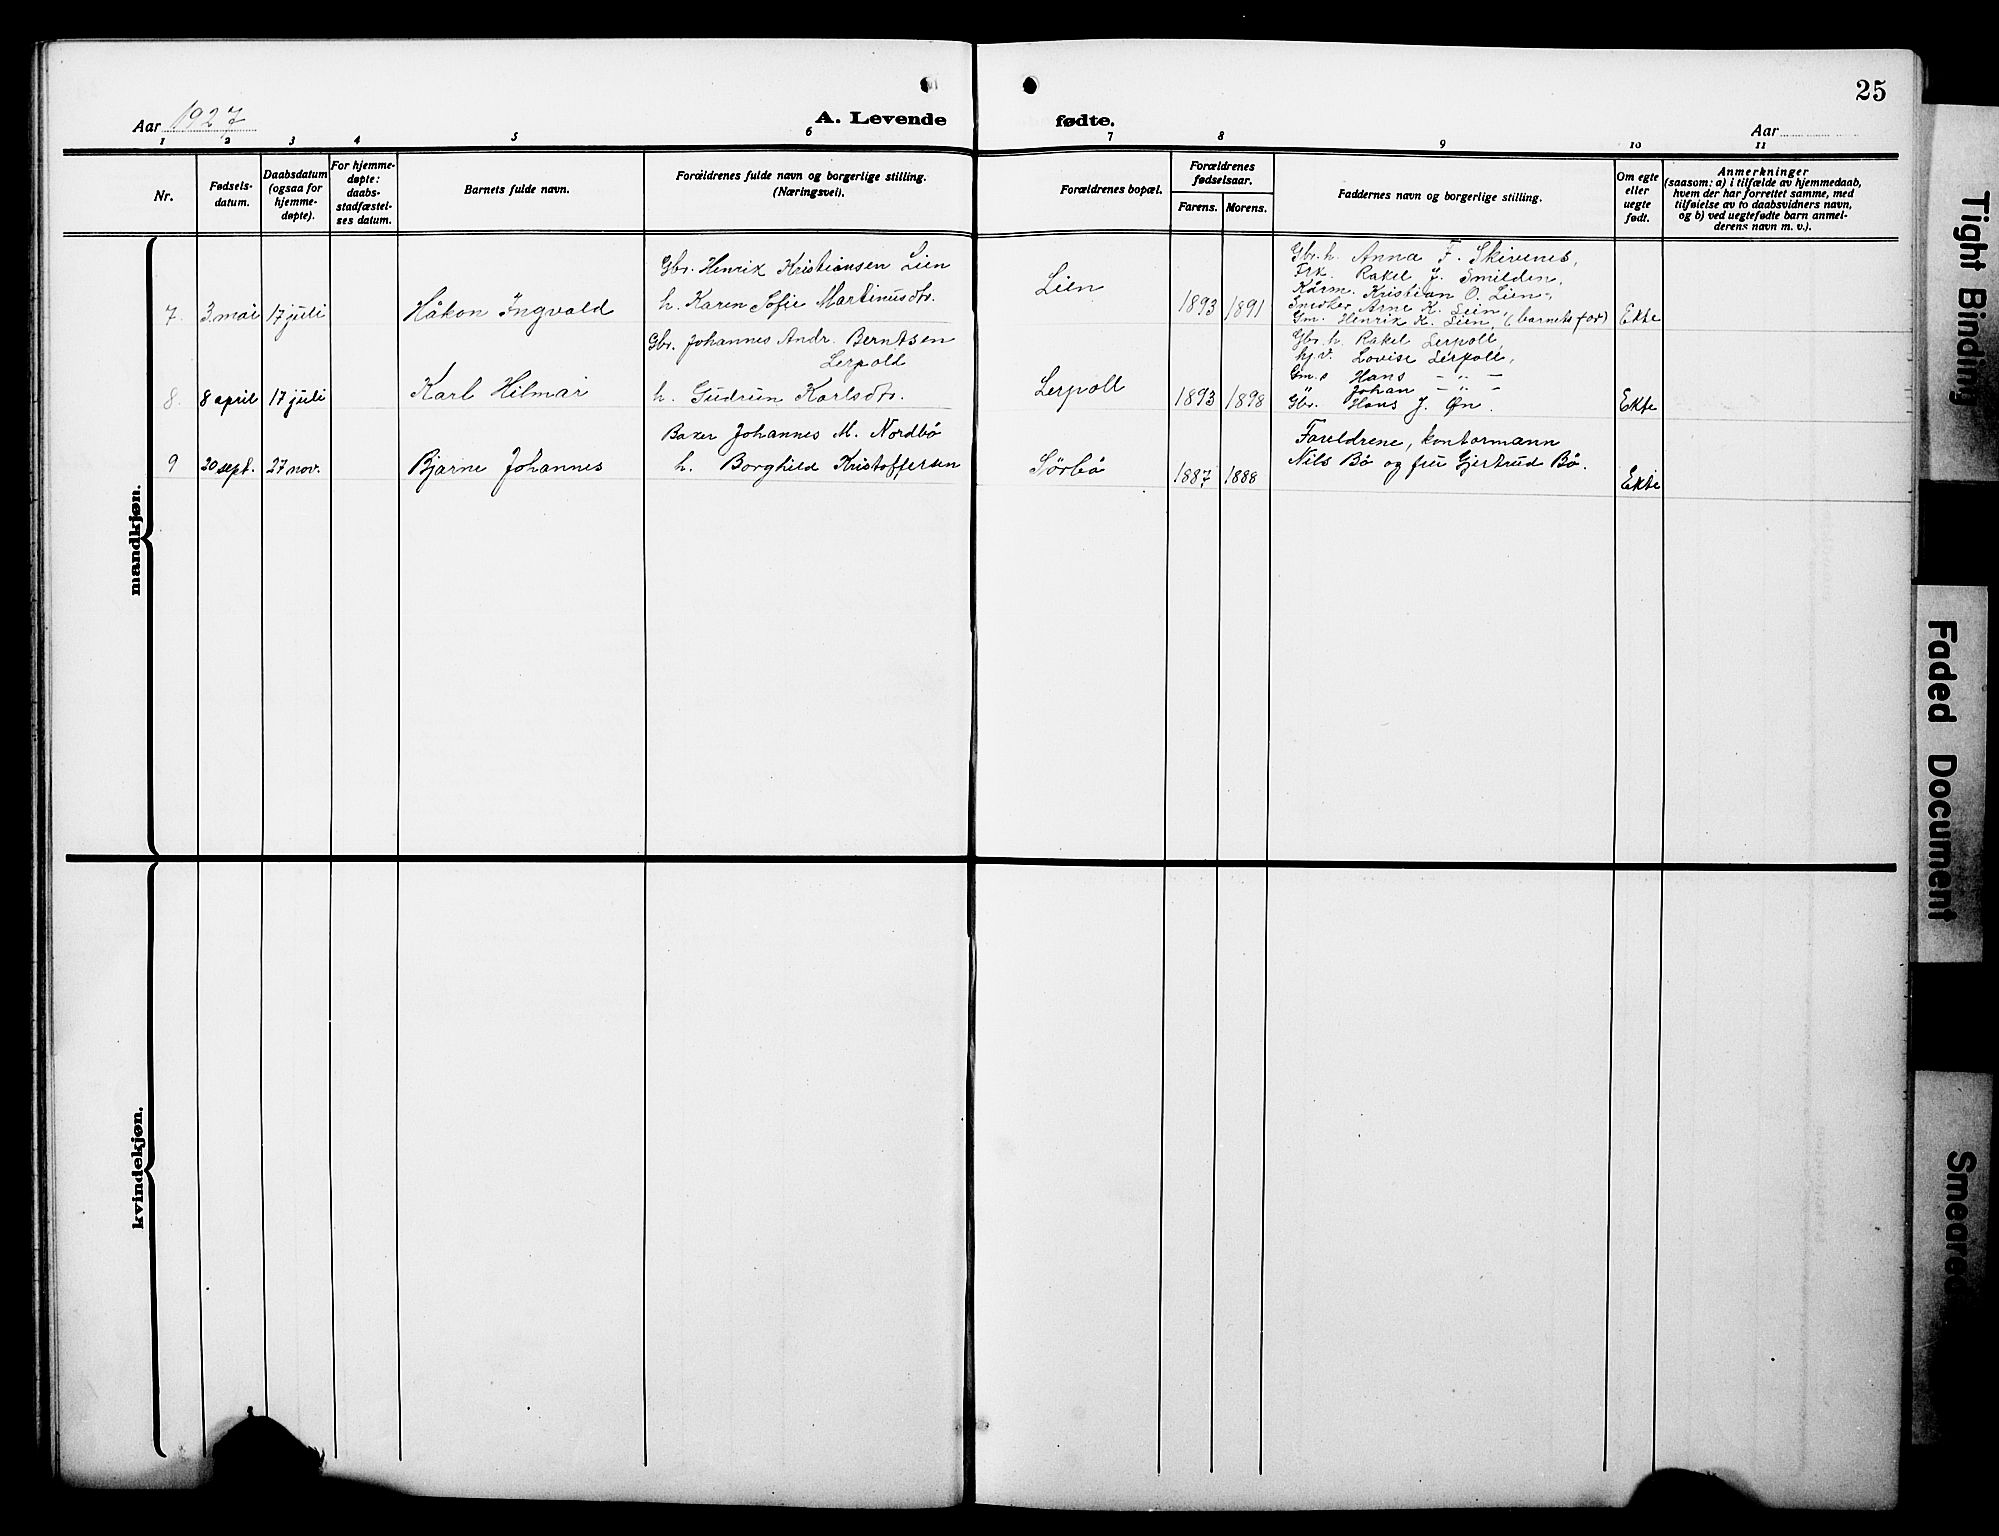 25
Aar 1927
A. Levende fødte.
Aar
1 2 3 4 5 6 7 8 9 10 11
Nr.
Fødsels-
datum.
Daabsdatum
(ogsaa for
hjemme-
døpte).
For hjemme-
døpte:
daabs-
stadfæstel-
ses datum.
Barnets fulde navn.
Forældrenes fulde navn og borgerlige stilling.
(Næringsvei).
Forældrenes bopæl.
Forældrenes
fødselsaar.
Farens. Morens.
Faddernes navn og borgerlige stilling.
Om egte
eller
uegte
født.
Anmerkninger
(saasom: a) i tilfælde av hjemmedaab,
hvem der har forrettet samme, med
tilføielse av to daabsvidners navn,
og b) ved uegtefødte barn anmel-
derens navn m. v.).
mandkjøn.
7. 3 mai 17 juli Håkon Ingvald
Gbr. Henrik Kristiansen Lien
h. Karen Sofie Martinusdtr.
Lien
1893 1891
Gbr. h. Anna F. Skivenes,
Frk. Rakel J. Smilden,
Kårm. Kristian O. Lien,
Snedker Arne K. Lien,
Gm. Henrik K. Lien, (barnets far)
Ekte
8. 8 april 17 juli Karl Hilmar
Gbr. Johannes Andr. Berntsen
Lerpold
h. Gudrun Karlsdtr.
Lerpoll
1893 1898
Gbr. h. Rakel Lerpoll,
hj.v. Lovise Lerpoll,
Gm.s Hans - " -
" Johan - " -
Gbr. Hans J. Øn.
Ekte
9 20 sept. 27 nov. Bjarne Johannes
Baker Johannes M. Nordbø
h. Borghild Kristoffersen
Sørbø
1887 1888
Foreldrene, kontormann
Nils Bø og fru Gjertrud Bø.
Ekte
kvindekjøn.
Tight Binding
Faded Document
Smeared